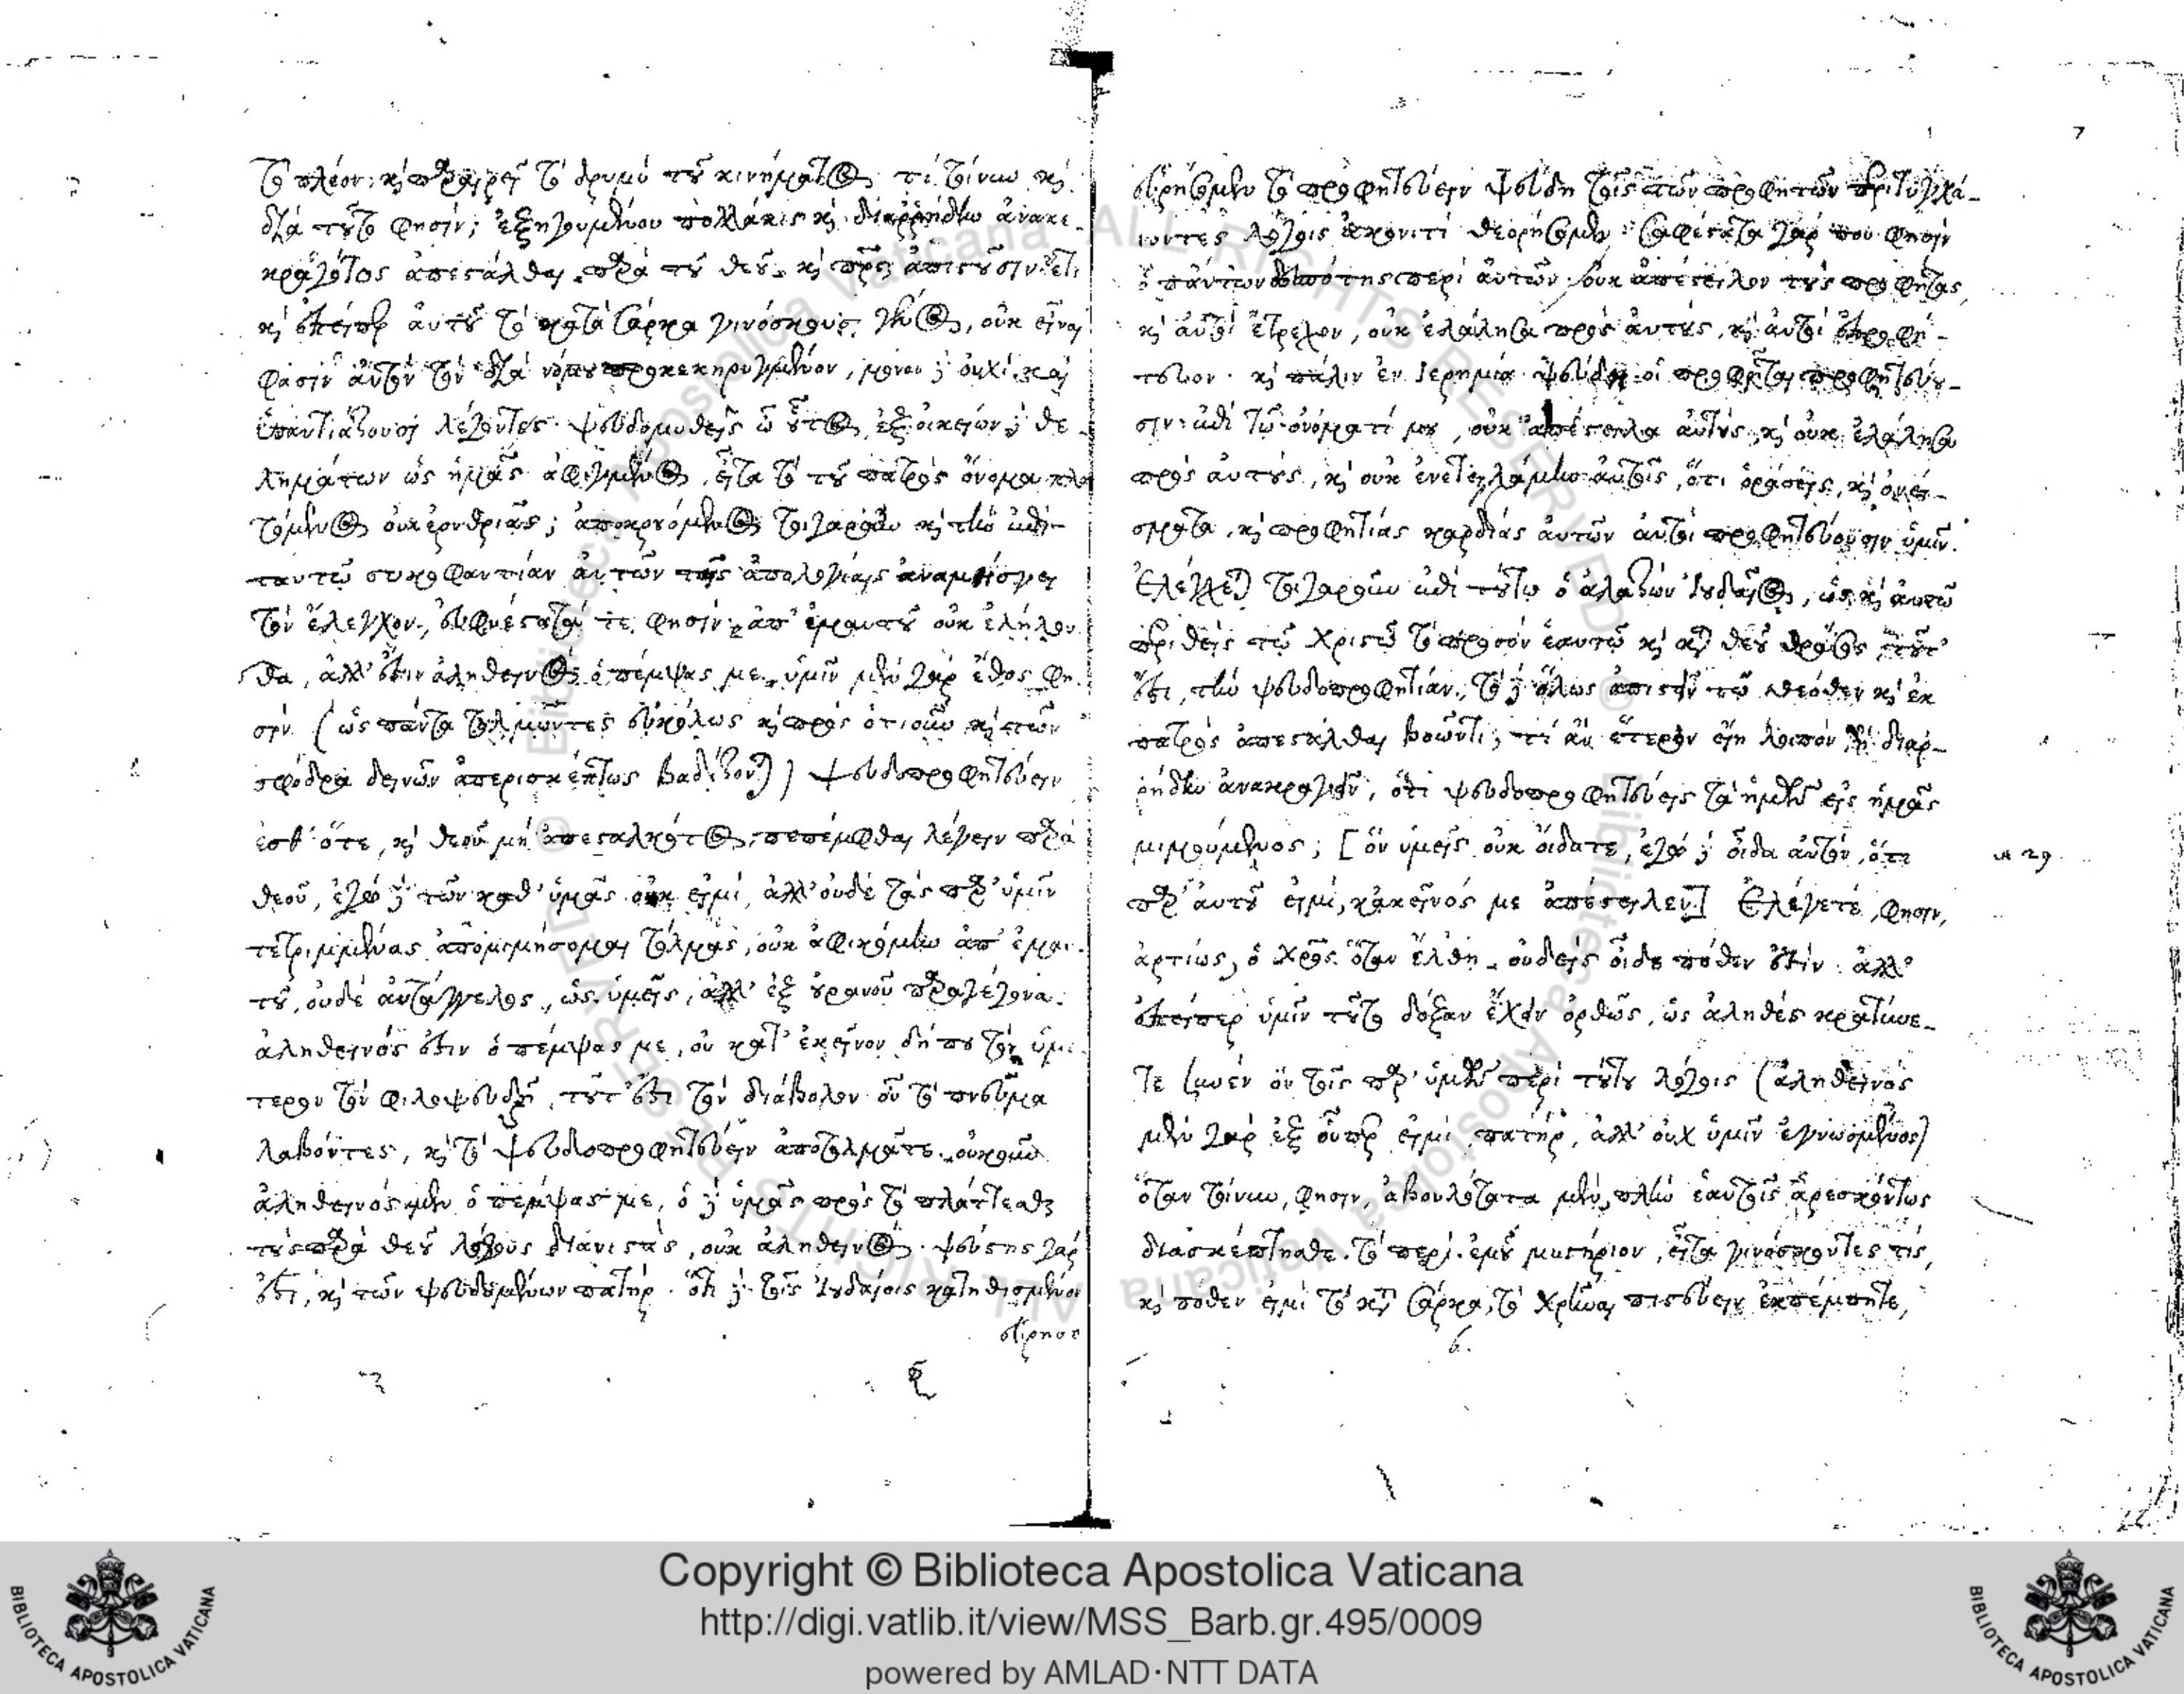 τὸ πλέον· καὶ παραιρεῖ τὸ δριμὺ τοῦ κινήματος. τί τοίνυν καὶ
διὰ τοῦτο φησίν; ἐξηγουμένου πολλάκις καὶ διαρρήδην ἀνακε-
κραγότος ἀπεστάλθαι παρὰ τοῦ θεοῦ καὶ πατρὸς ἀπιστοῦσιν ἔτι
καὶ ἐπείπερ αὐτοῦ τὸ κατὰ σάρκα γινώσκουσι γένος, οὐκ εἶναι
φασὶν αὐτὸν τὸν διὰ νόμου προκεκηρυγμένον, μόνον δὲ οὐχὶ καὶ
ἐναντιάζουσι λέγοντες· ψευδομυθεῖς ὦ οὗτος, ἐξ οἰκείων δὲ θε-
λημάτων ὡς ἡμᾶς ἀφιγμένος, εἶτα τὸ τοῦ πατρὸς ὄνομα πλα
τόμενος οὐκ ἐρυθριᾷς; ἀποκρουόμενος τοιγαροῦν καὶ τὴν ἐπὶ
ταυτῷ συκοφαντίαν αὐτῶν ταῖς ἀπολογίαις ἀναμίσγει
τὸν ἔλεγχον, εὐφυέστατά τε φησίν· ἀπ' ἐμαυτοῦ οὐκ ἐλήλυ
θα, ἀλλ' ἔστιν ἀληθεινὸς ὁ πέμψας με, ὑμῖν μὲν γὰρ ἔθος φη
σὶν (ὡς πάντα τολμῶντες εὐκόλως καὶ πρὸς ὁτιοῦν καὶ τῶν
σφόδρα δεινῶν ἀπερισκέπτως βαδίζονται) ψευδοπροφητεύειν
ἐσθ' ὅτε, καὶ θεοῦ μὴ ἀπεσταλκότος, πεπέμφθαι λέγειν παρὰ
θεοῦ, ἐγὼ δὲ τῶν καθ' ὑμᾶς οὐκ εἰμί, ἀλλ' οὐδὲ τὰς παρ' ὑμῖν
τετριμμένας ἀπομιμήσομαι τόλμας, οὐκ ἀφικόμην ἀπ' ἐμαυ-
τοῦ, οὐδὲ αὐτάγγελος, ὡς ὑμεῖς, ἀλλ' ἐξ οὐρανοῦ παραγέγονα.
ἀληθεινός ἐστιν ὁ πέμψας με, οὐ κατ' ἐκεῖνον δήπου τὸν ὑμέ
τερον τὸν φιλοψευδῆ, τοῦτ' ἔστι τὸν διάβολον οὗ τὸ πνεῦμα
λαβόντες, καὶ τὸ ψευδοπροφητεύειν ἀποτολμᾶτε. οὐκοῦν
ἀληθεινὸς μὲν ὁ πέμψας με, ὁ δὲ ὑμᾶς πρὸς τὸ πλάττεσθαι
τοὺς παρὰ θεοῦ λόγους διανιστὰς, οὐκ ἀληθεινός· ψεύστης γάρ
ἐστι, καὶ τῶν ψευδομένων πατήρ. ὅτι δὲ τοῖς Ἰουδαίοις κατηθισμένον
εὑρήσο
7
εὑρήσομεν τὸ προφητεύειν ψευδῆ τοῖς τῶν προφητῶν περιτυγχά-
νοντες λόγοις ἀκονιτὶ θεωρήσομεν. σαφέστατα γάρ που φησὶν
ὁ πάντων δεσπότης περὶ αὐτῶν· οὐκ ἀπέστειλον τοὺς προφήτας,
καὶ αὐτοὶ ἔτρεχον, οὐκ ἐλάλησα πρὸς αὐτοὺς, καὶ αὐτοὶ ἐπροφή-
τευον. καὶ πάλιν ἐν Ἱερημίᾳ· ψευδῆ οἱ προφῆται προφητεύου-
σιν ἐπὶ τῷ ὀνόματί μου, οὐκ ἀπέστειλα αὐτοὺς, καὶ οὐκ ἐλάλησα
πρὸς αὐτοὺς, καὶ οὐκ ἐνετειλάμην αὐτοῖς, ὅτι ὁράσεις, καὶ οἰωνίσ-
σματα, καὶ προφητίας καρδίας αὐτῶν αὐτοὶ προφητεύουσιν ὑμῖν.
Ἐλέγχεται τοιγαροῦν ἐπὶ τούτῳ ὁ ἀλαζὼν Ἰουδαῖος, ὡς καὶ αὐτῷ
περιθεὶς τῷ Χριστῷ τὸ προσὸν ἑαυτῷ καὶ κατὰ θεοῦ θράσος τοῦτ'
ἔστι, τὴν ψευδοπροφητίαν. τὸ δὲ ὅλως ἀπιστεῖν τῷ θεόθεν καὶ ἐκ
πατρὸς ἀπεστάλθαι βοῶντι, τί ἂν ἕτερον εἴη λοιπὸν ἢ διαρ-
ρήδην ἀνακραγεῖν, ὅτι ψευδοπροφητεύεις τὰ ἡμῶν εἰς ἡμᾶς
μιμούμενος; [ὃν ὑμεῖς οὐκ οἴδατε, ἐγὼ δὲ οἶδα αὐτὸν, ὅτι
παρ' αὐτοῦ εἰμί, κἀκεῖνός με ἀπέστειλεν] Ἐλέγετέ, φησιν,
29
ἀρτίως, ὁ Χριστὸς ὅταν ἔλθῃ οὐδεὶς οἶδε πόθεν ἐστίν. ἀλλ'
ἐπείπερ ὑμῖν τοῦτο δόξαν ἔχειν ὀρθῶς, ὡς ἀληθὲς κρατύνε-
τε περὶ τούτου λόγοις (ἀληθεινὸς
μὲν γὰρ ἐξ οὗπερ εἰμὶ πατήρ, ἀλλ' οὐχ ὑμῖν ἐγνωσμένος)
ὅταν τοίνυν, φησιν, ἀβουλότατα μὲν, πλὴν ἑαυτοῖς ἀρεσκόντως
διασκέπτησθε τὸ περὶ ἐμοῦ μυστήριον, εἶτα γινώσκοντες τίς,
καὶ πόθεν εἰμὶ τὸ κατὰ σάρκα, τὸ χρῆναι πιστεύειν ἐκπέμπητε,